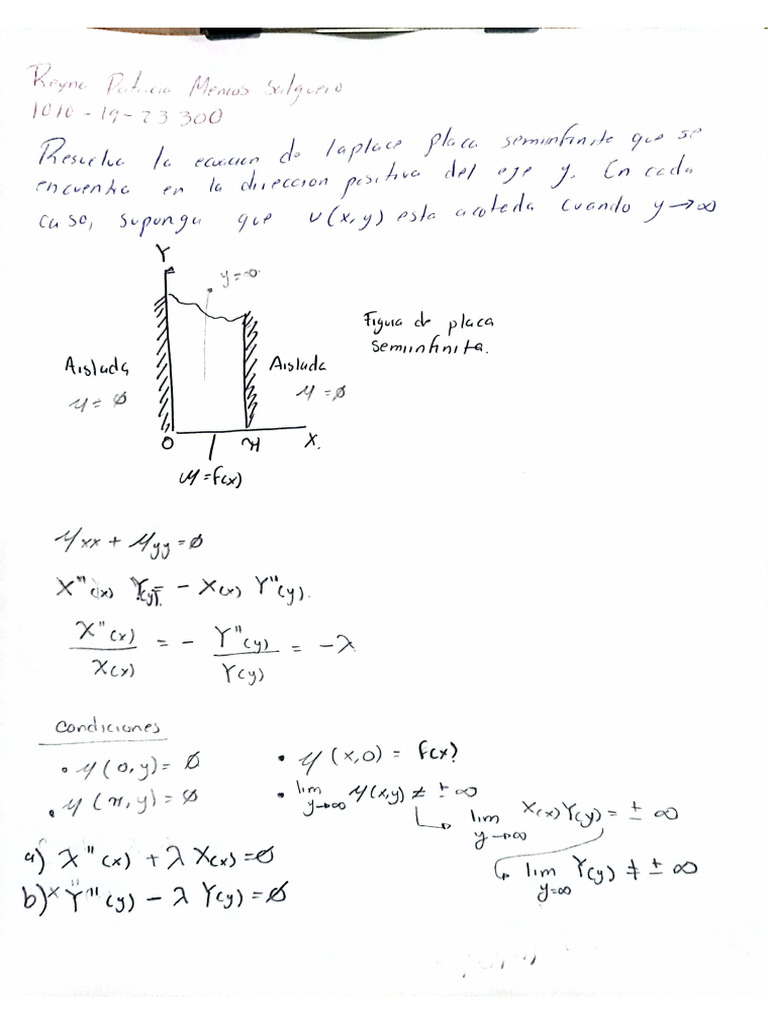 Reyna Patricia Mencos Salguero
1010-19-23300
Resuelva la ecuacion de laplace placa semiinfinite que se
encuentra en la direccion positiva del eje y. En cada
caso, suponga que u(x,y) esta acotada cuando y→∞
Y
y=∞
Figura de placa
semiinfinita.
Aislada
Aislada
u=ø
u=ø
0
π
X.
u=f(x)
uxx + uyy = ø
X"(x) Y(y) = - X(x) Y"(y).
X"(x)/X(x) = - Y"(y)/Y(y) = -λ
Condiciones
• u(0,y) = ø
• u(x,0) = f(x)?
• u(π,y) = ø
• lim y→∞ u(x,y) ≠ ± ∞
lim y→∞ X(x)Y(y) = ± ∞
lim y=∞ Y(y) ≠ ± ∞
a) X"(x) + λ X(x) = ø
b) Y"(y) - λ Y(y) = ø